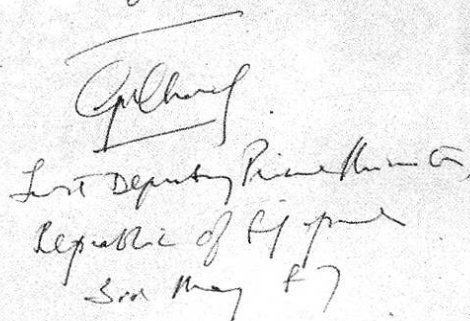 First Deputy Prime Minister,
Republic of
3rd May 87